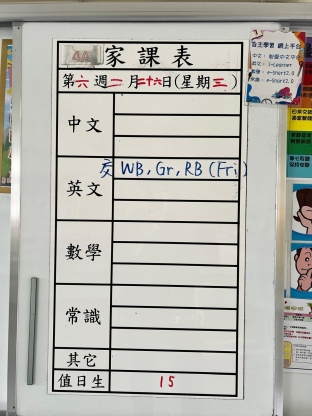 4A 家課表
第六週二月二十六日(星期三)
中文
英文 交 WB, Gr, RB (Fri)
數學
常識
其它
值日生 15
自主學習 網上平台
i-Learner
e-Smart2.0
e-Smart2.0